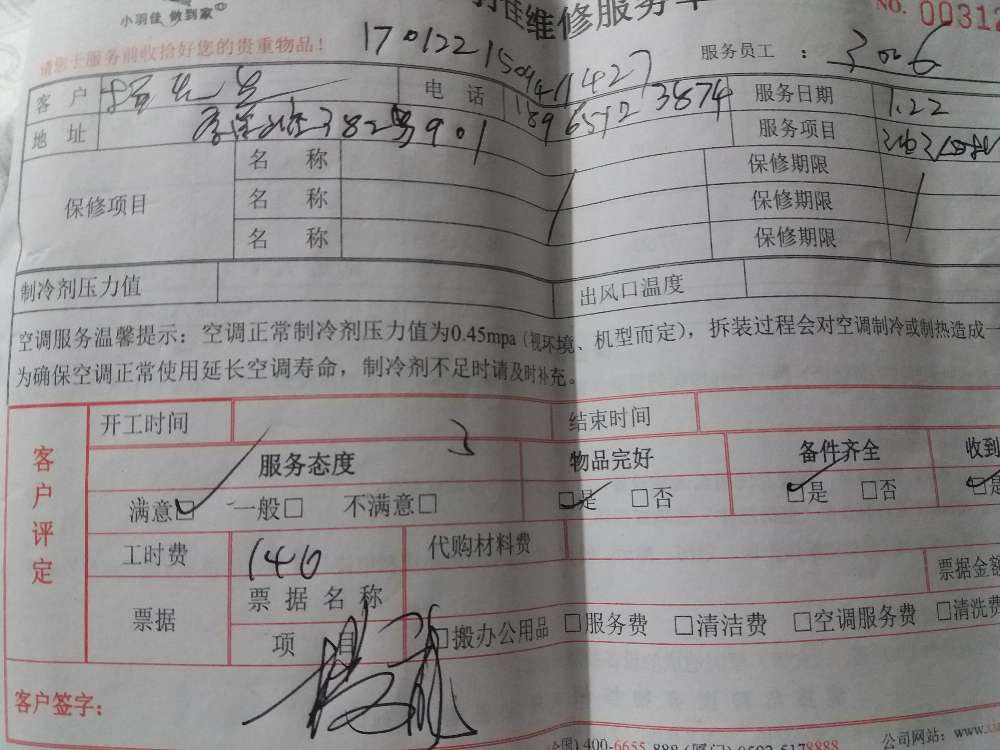 小羽佳 做到家
羽佳维修服务单
NO. 00312
请您于服务前收拾好您的贵重物品!
17012215094711427
服务员工 : 3006
客 户 先生 电 话 18965123874 服务日期 1.22
地 址 382号901 服务项目
保修项目 名 称 保修期限
名 称 保修期限
名 称 保修期限
制冷剂压力值 出风口温度
空调服务温馨提示:空调正常制冷剂压力值为0.45mpa(视环境、机型而定),拆装过程会对空调制冷或制热造成一
为确保空调正常使用延长空调寿命,制冷剂不足时请及时补充。
客户评定 开工时间 结束时间
服务态度 3 物品完好 备件齐全 收到
满意☑ 一般□ 不满意□ ☑是 □否 ☑是 □否 ☑是
工时费 140 代购材料费
票据 票据名称 票据金额
项 目 □搬办公用品 □服务费 □清洁费 □空调服务费 □清洗费
客户签字:
400-6655-888
公司网站:www.